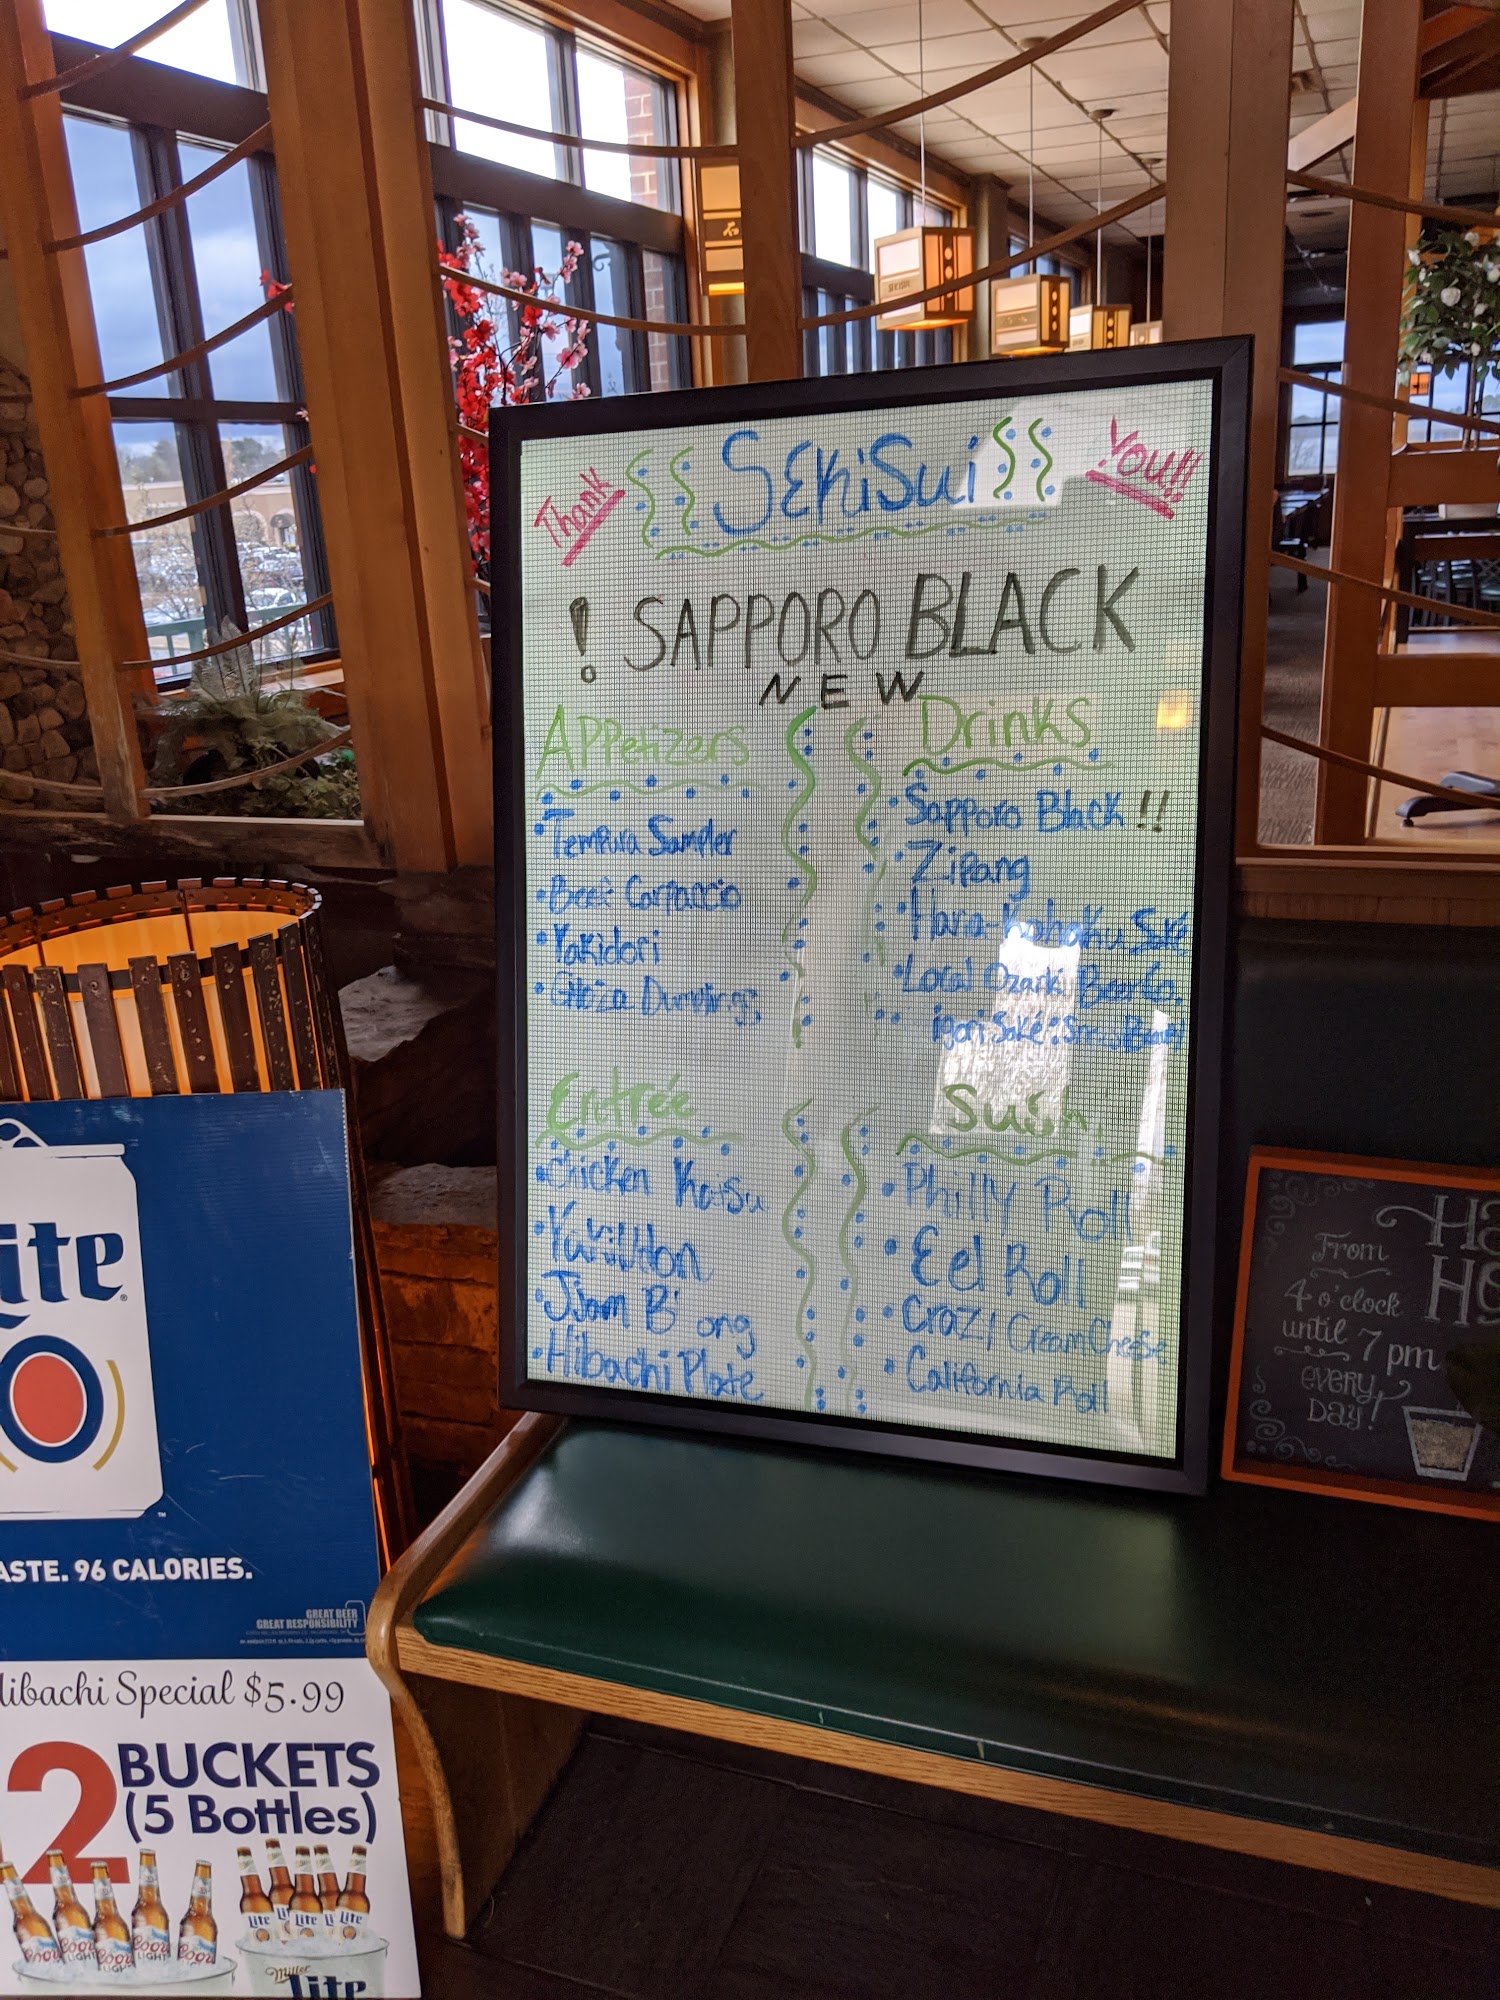 Thank
SEKiSui
You!!
! SAPPORO BLACK
NEW
Appetizers
• Tempura Sampler
• Beef Carpaccio
• Yakidori
• Ghoza Dumplings
Drinks
• Sapporo Black !!
• Zipang
• Hana-Kohaku Saké
• Local Ozark Beer Co.
Entrée
• Chicken Katsu
•
Jjam B'ong
• Hibachi Plate
• Philly Roll
• Eel Roll
• Crazy Cream Cheese
• California Roll
From
4 o'clock
until 7 pm
every
Day!
Lite
ASTE. 96 CALORIES.
GREAT BEER
GREAT RESPONSIBILITY
Hibachi Special $5.99
2 BUCKETS
(5 Bottles)
Coors
LIGHT
Lite
Miller
Lite